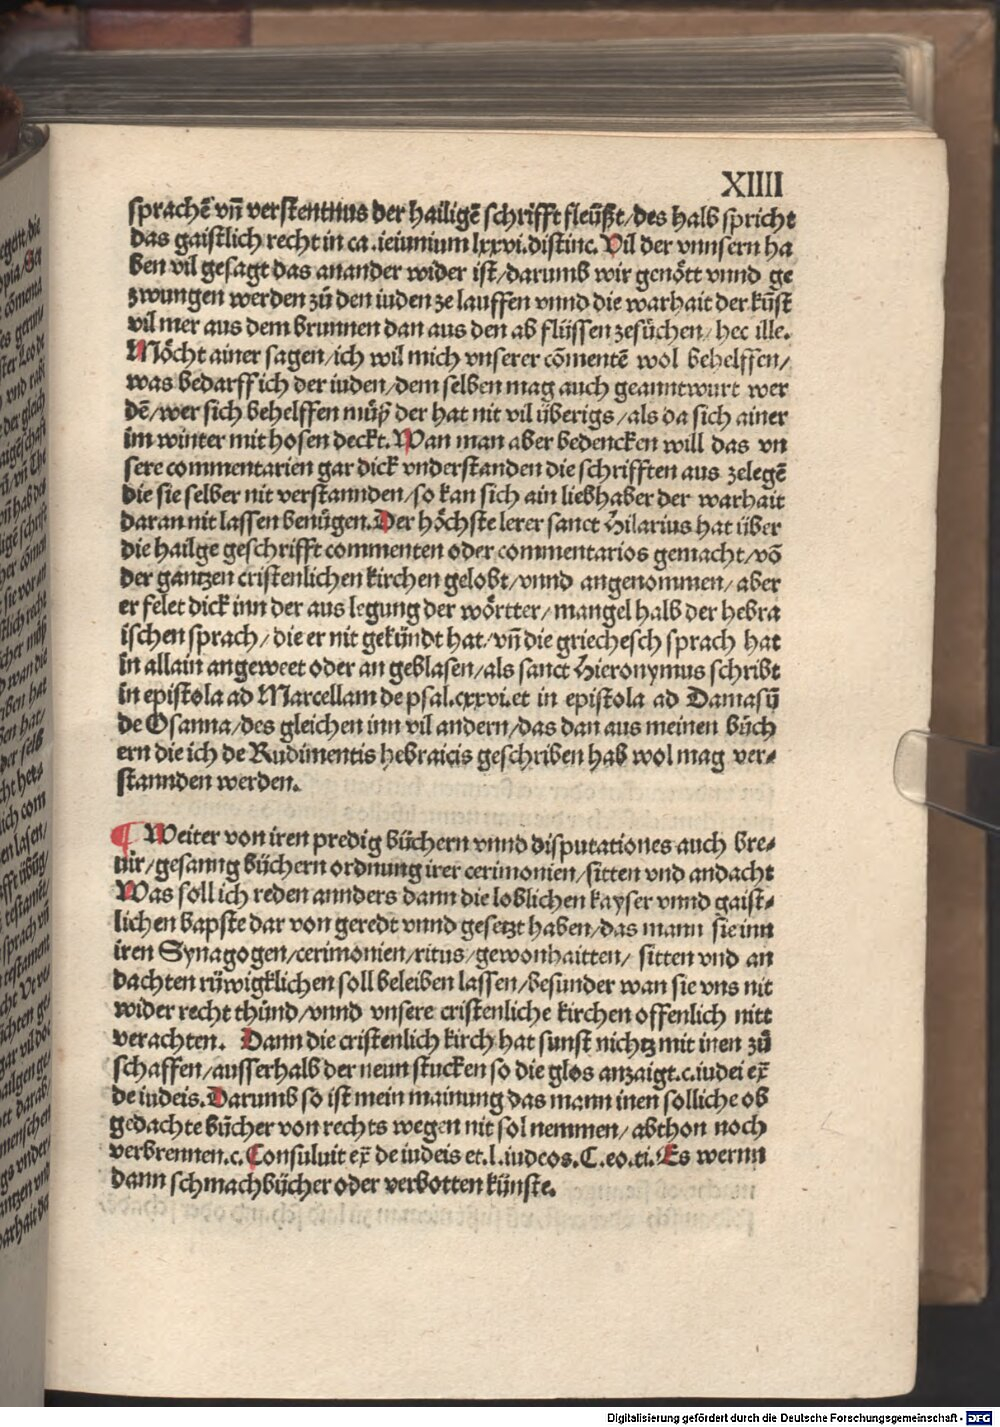 XIIII
sprachē vn̄ verstentnus der hailigē schrifft fleüßt/des halb spricht
das gaistlich recht in ca.ieiunium lxxvi.distinc. Vil der vnnsern ha
ben vil gesagt das anander wider ist/darumb wir genött vnnd ge
zwungen werden zů den iuden ze lauffen vnnd die warhait der kűst
vil mer aus dem brunnen dan aus den ab flüssen zesůchen/hec ille.
Möcht ainer sagen/ich wil mich vnserer cōmentē wol behelffen/
was bedarff ich der iuden/dem selben mag auch geanntwurt wer
dē/wer sich behelffen můß der hat nit vil überigs/als da sich ainer
im winter mit hosen deckt. Wan man aber bedencken will das vn
sere commentarien gar dick vnderstanden die schrifften aus zelegē
die sie selber nit verstannden/so kan sich ain liebhaber der warhait
daran nit lassen benügen. Der höchste lerer sanct Hilarius hat über
die hailge geschrifft commenten oder commentarios gemacht/vō
der gantzen cristenlichen kirchen gelobt/vnnd angenommen/aber
er felet dick inn der aus legung der wörtter/mangel halb der hebra
ischen sprach/die er nit gekündt hat/vn̄ die griechesch sprach hat
in allain angeweet oder an geblasen/als sanct Hieronymus schribt
in epistola ad Marcellam de psal.cxxvi.et in epistola ad Damasū
de Osanna/des gleichen inn vil andern/das dan aus meinen bůch
ern die ich de Rudimentis hebraicis geschriben hab wol mag ver⸗
stannden werden.
¶ Weiter von iren predig büchern vnnd disputationes auch bre⸗
uir/gesanng büchern ordnung irer cerimonien/sitten vnd andacht
Was soll ich reden annders dann die loblichen kayser vnnd gaist⸗
lichen bapste dar von geredt vnnd gesetzt haben/das mann sie inn
iren Synagogen/cerimonien/ritus/gewonhaitten/ sitten vnd an
dachten rüwigklichen soll beleiben lassen/besunder wan sie vns nit
wider recht thünd/vnnd vnsere cristenliche kirchen offenlich nitt
verachten. Dann die cristenlich kirch hat sunst nichtz mit inen zů
schaffen/ausserhalb der neun stucken so die glos anzaigt.c.iudei ex̄
de iudeis. Darumb so ist mein mainung das mann inen solliche ob
gedachte bücher von rechts wegen nit sol nemmen/abthon noch
verbrennen.c. Consuluit ex̄ de iudeis et.l.iudeos.C.eo.ti. Es wernn
dann schmachbücher oder verbotten künste.
Digitalisierung gefördert durch die Deutsche Forschungsgemeinschaft - DFG